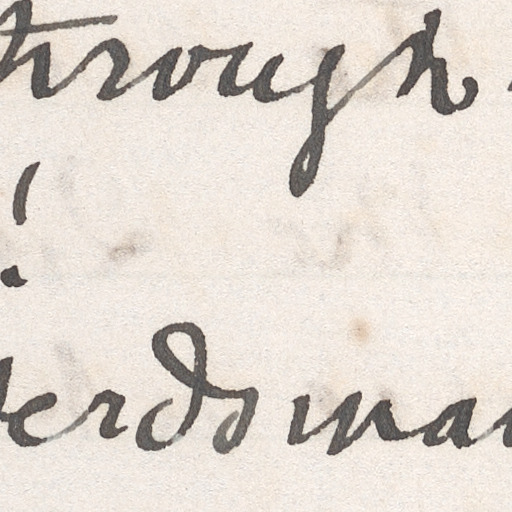 through
!
erdsma